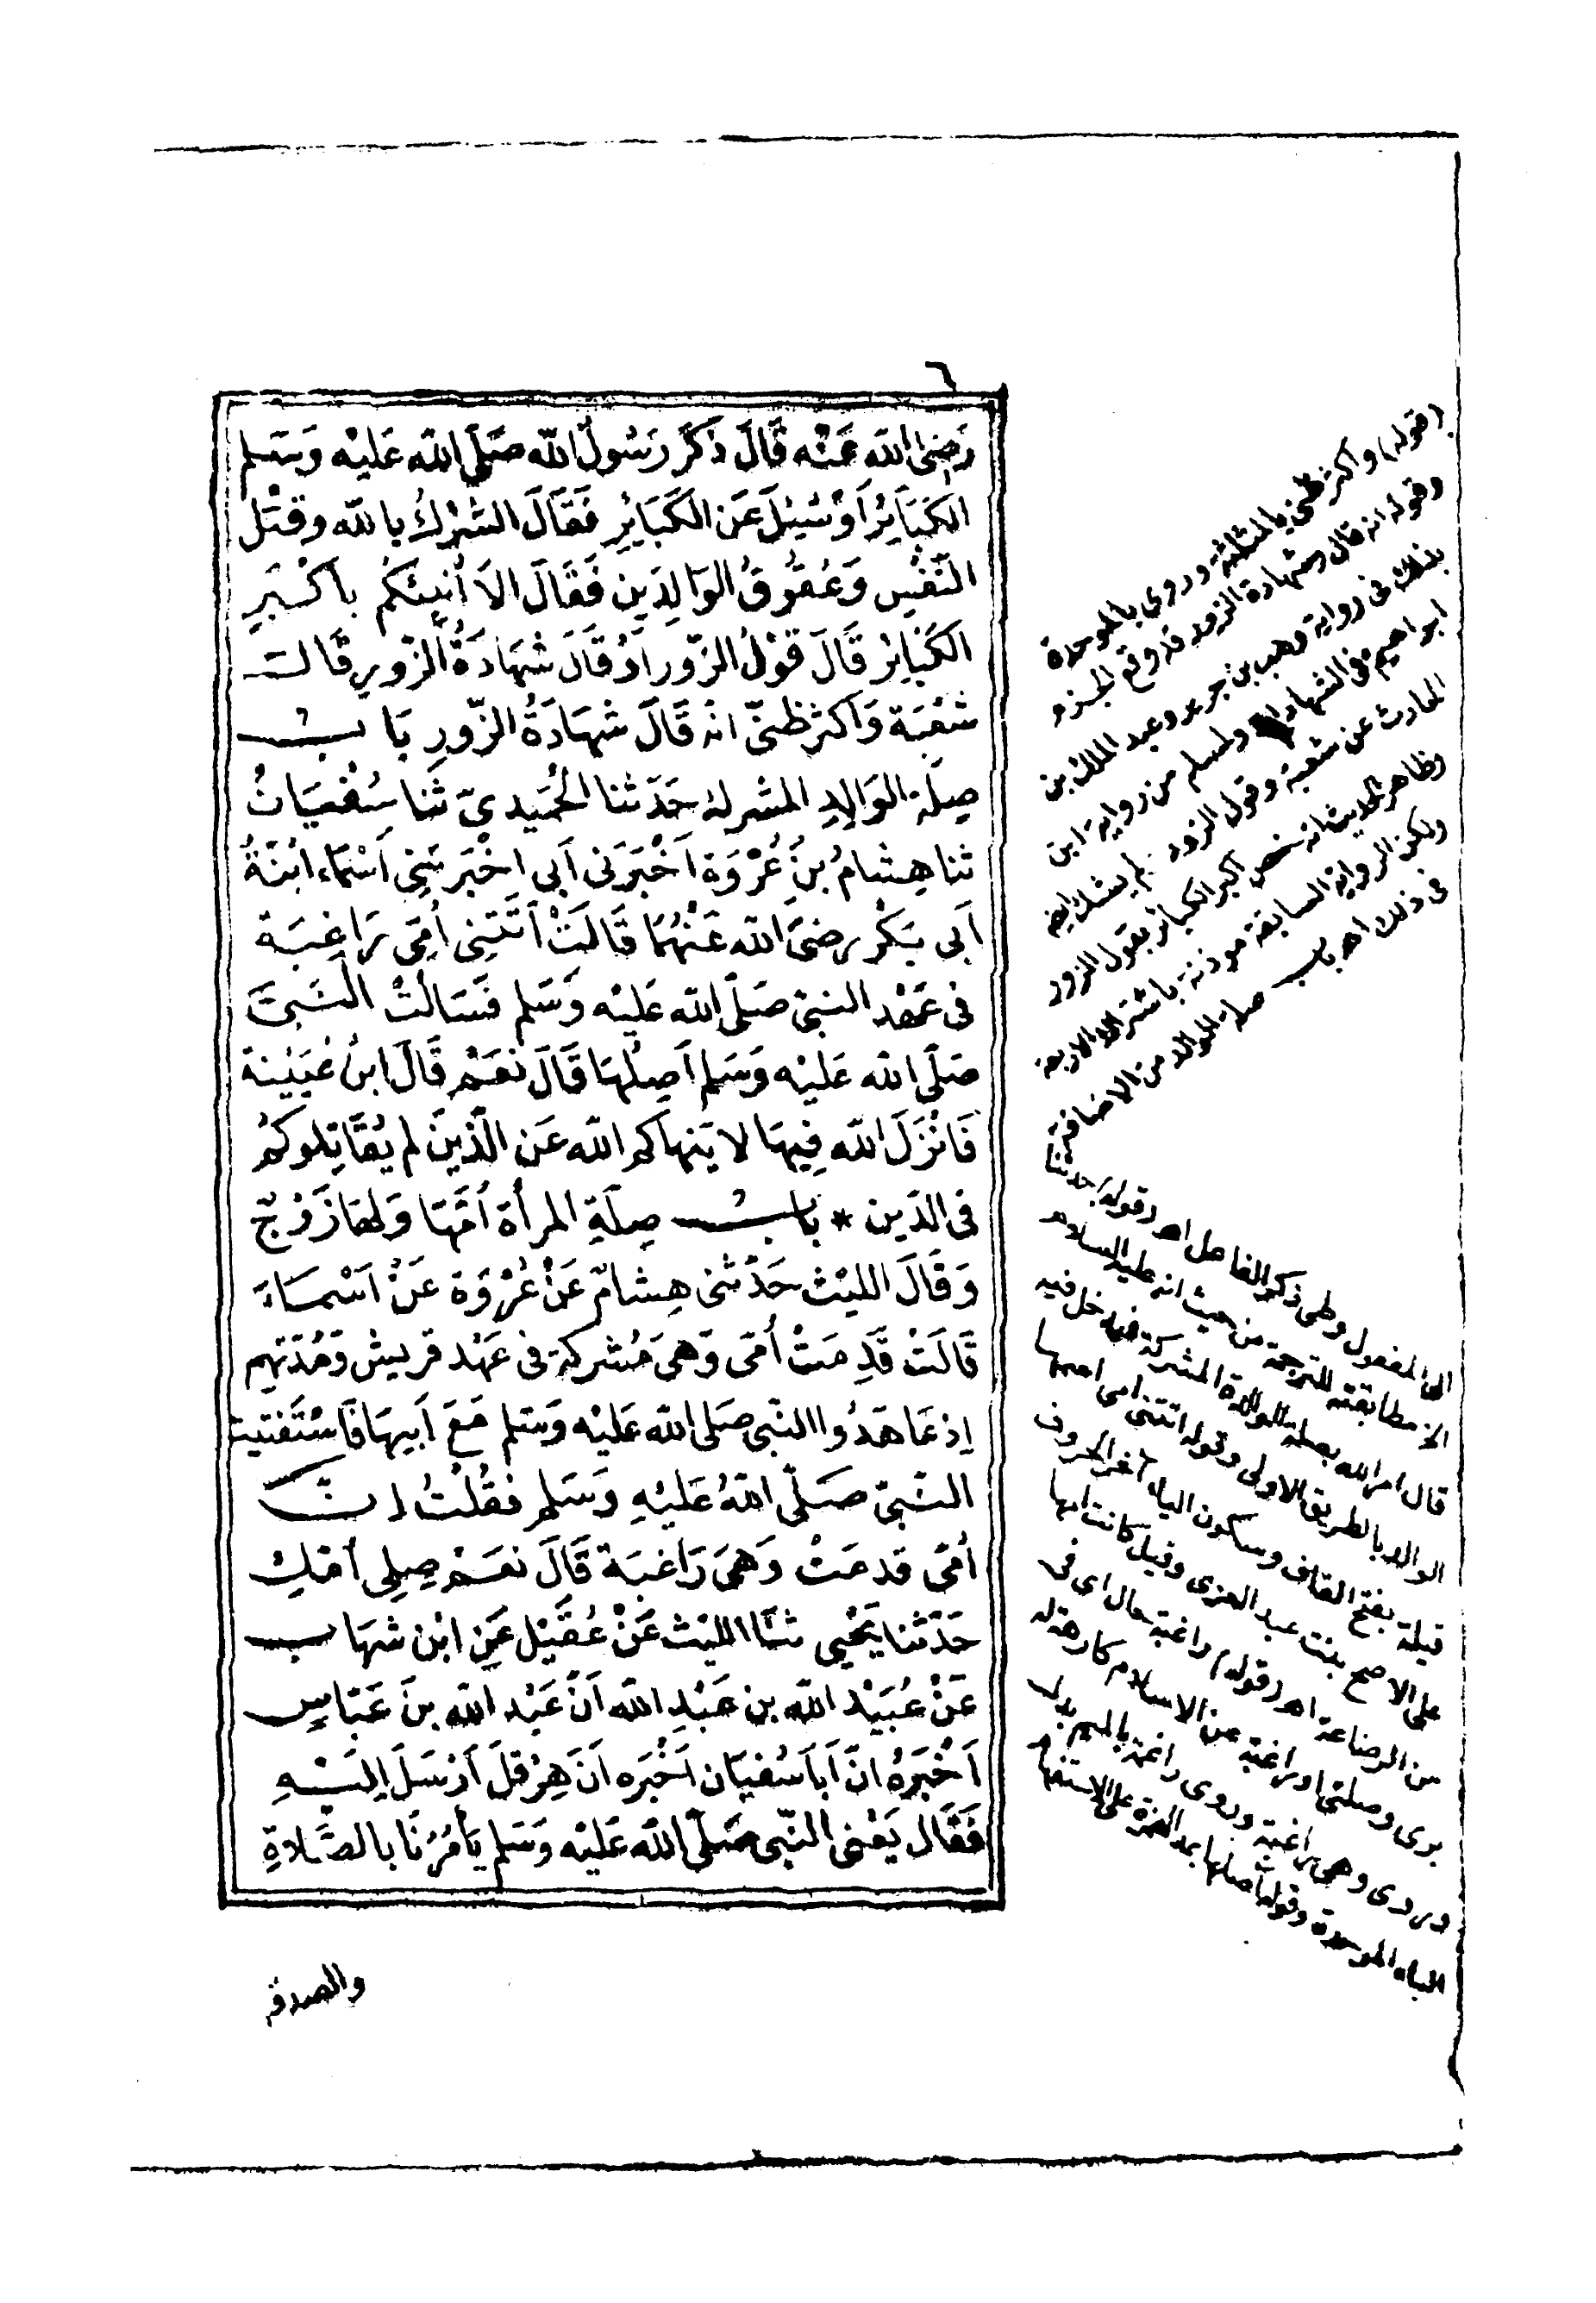 ٦
رَضِىَ اللّه عَنْه قَالَ ذَكَرَ رَسُولُ اللّه صَلَّى اللّه عَلَيْه وَسَلم
الكَبَائِرَ اَوْ سُئِلَ عَن الكَبَائِرِ فَقَالَ الشِّرْكُ باللّه وقَتْل
النّفْسِ وَعُقُوقُ الوَالِدَيِن فَقَالَ الاَ اُنَبِئكُم باَكْبَرِ
الكَبَائِر قَالَ قَوْلُ الزّور اَوْ قَالَ شَهَادَةُ الزّورِ قَالت
شُعْبَة وَاَكثرُ ظَنّى انهُ قَالَ شَهَادَةُ الزّورِ بَابُ
صِلَة الوَالِدِ المشرك حَدّثنا الحُمَيدىّ ثَنا سُفْيَانُ
ثنا هِشامُ بنُ عُرْوَة اَخْبَرَنى اَبى اخْبَرَتنِى اَسْمَاء ابْنَةُ
اَبى بَكْر رضىَ اللّه عَنْهُمَا قَالَتْ اَتَتِنِى اُمِّى رَاغِبَة
فى عَهْد النبىّ صَلّى اللّه عَليْه وَسَلم فَسَالْتُ النَّبىَّ
صَلّى اللّه عَليْه وَسَلم اَصِلُهَا قَالَ نعَم قَالَ ابنُ عُيَيْنة
فَانْزَلَ اللّه فِيهَا لا يَنهاكم اللّه عَن الّذينَ لم يُقَاتِلوكمُ
فى الدّين * بابُ صِلَةِ المرأة اُمَّهَا وَلهَا زَوْجٌ
وَقَالَ الليْث حَدّثنى هِشامٌ عَنْ عُرْوَة عَنْ اَسْمَاءَ
قَالَتْ قَدِمَتْ اُمّى وَهىَ مُشركة فى عَهْد قريشٍ وَمُدّتِهِم
اِذ عَاهَدُوا النّبى صَلى اللّه عَليْه وَسَلم مَعَ اَبِيهَا فَاسْتَفتيت
النّبىّ صَلّى اللّهُ عَليْهِ وَسَلم فقُلْتُ انّ
اُمّى قدمَتْ وَهىَ رَاغبَة قَالَ نعَمْ صِلِى اُمّكِ
حَدّثنا يَحْيى ثنَا الليْث عَنْ عُقَيْل عَنِ ابْن شهَاب
عَنْ عُبَيْد اللّه بن عَبْدِ اللّه اَنّ عَبْد اللّه بنَ عَبّاسٍ
اَخْبَرَهُ انّ اَبَا سُفيَان اَخْبَره اَنَ هِرَقْلَ اَرْسَلَ اِليْهِ
فَقَال يَعْنى النّبى صَلّى اللّه عَليْه وَسَلم يَأمُرُنَا بالصَّلاةِ
والصدقة
(قوله) واكثر ظنى بالمثلثة وروى بالموحدة
وقوله انه قال شهادة الزور قد وقع الجزم
بذلك فى رواية وهب بن جرير وعبد الملك بن
ابراهيم فى الشهادات ولمسلم من رواية ابن
الحارث عن شعبة وقول الزور لم يشك فيه
وظاهر الحديث انه خص اكبر الكبائر بقول الزور
ولكن الرواية السابقة موذنة باشتراك الاربعة
فى ذلك اهـ باب صلة الوالد من الاضافة
الى المفعول وطى ذكر الفاعل اهـ (قوله) حدثنا
الخ مطابقته للترجمة من حيث انه عليه السلام
قال امر الله بصلة الوالدة المشركة فيدخل فيه
الوالد بالطريق الاولى وقوله اتتنى امى اسمها
قيلة بفتح القاف وسكون الياء آخر الحروف
على الاصح بنت عبد العزى وقيل كانت امها
من الرضاعة اهـ (قوله) راغبة حال اى فى
برى وصلتى او راغبة عن الاسلام كارهة له
وروى وهى راغبة وروى راغمة بالميم بدل
الباء الموحدة وقوله آصلها بمد الهمزة على الاستفهام